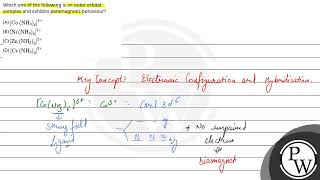 Which one of the following is an outer orbital
complex and exhibits paramagnetic behaviour?
(A) [Co(NH₃)₆]³⁺
(B) [Ni(NH₃)₆]²⁺
(C) [Zn(NH₃)₆]²⁺
(D) [Cr(NH₃)₆]³⁺
Key Concept: Electronic Configuration and Hybridisation.
[Co(NH₃)₆]³⁺ : Co³⁺ : [Ar] 3d⁶
Strong field
Ligand
No unpaired
electron
Diamagnet
PW